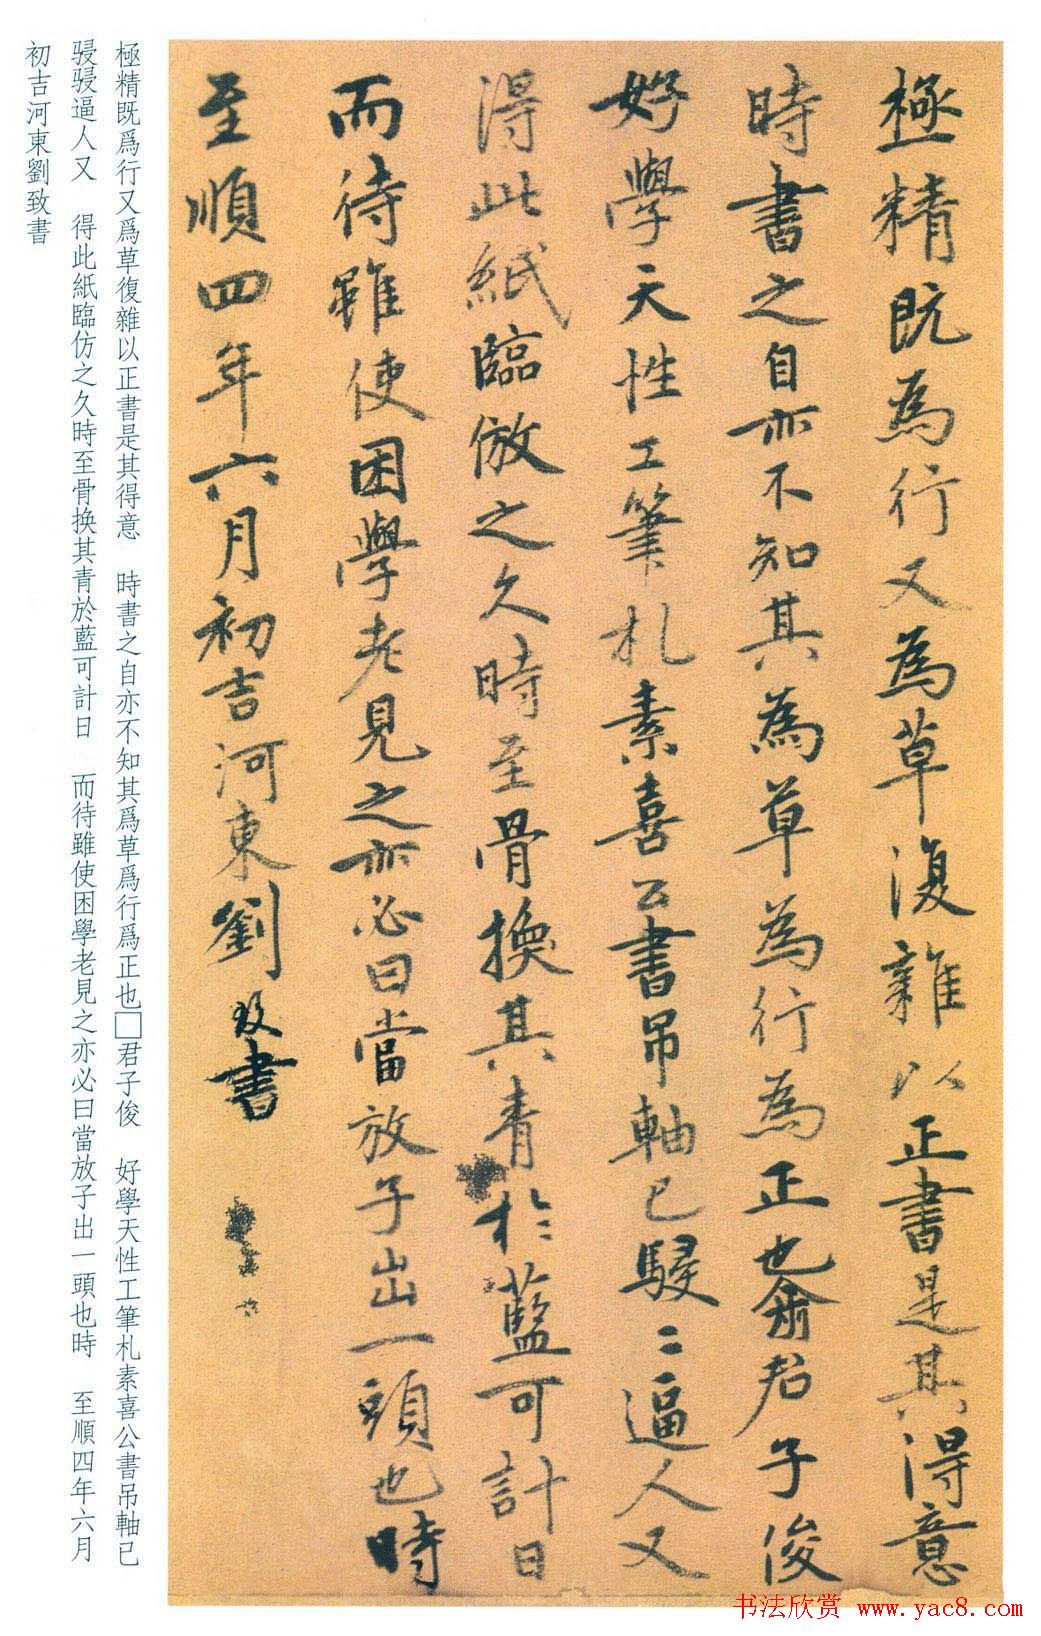 極精既為行又為草復雜以正書是其得意
時書之自亦不知其為草為行為正也俞君子俊
好學天性工筆札素喜公書吊軸已駸〻逼人又
得此紙臨倣之久時至骨換其青於藍可計日
而待雖使困學老見之亦必曰當放子出一頭也時
至順四年六月初吉河東劉致書
極精既爲行又爲草復雜以正書是其得意　時書之自亦不知其爲草爲行爲正也□君子俊　好學天性工筆札素喜公書吊軸已
駸駸逼人又　得此紙臨仿之久時至骨換其青於藍可計日　而待雖使困學老見之亦必曰當放子出一頭也時　至順四年六月
初吉河東劉致書
书法欣赏 www.yac8.com